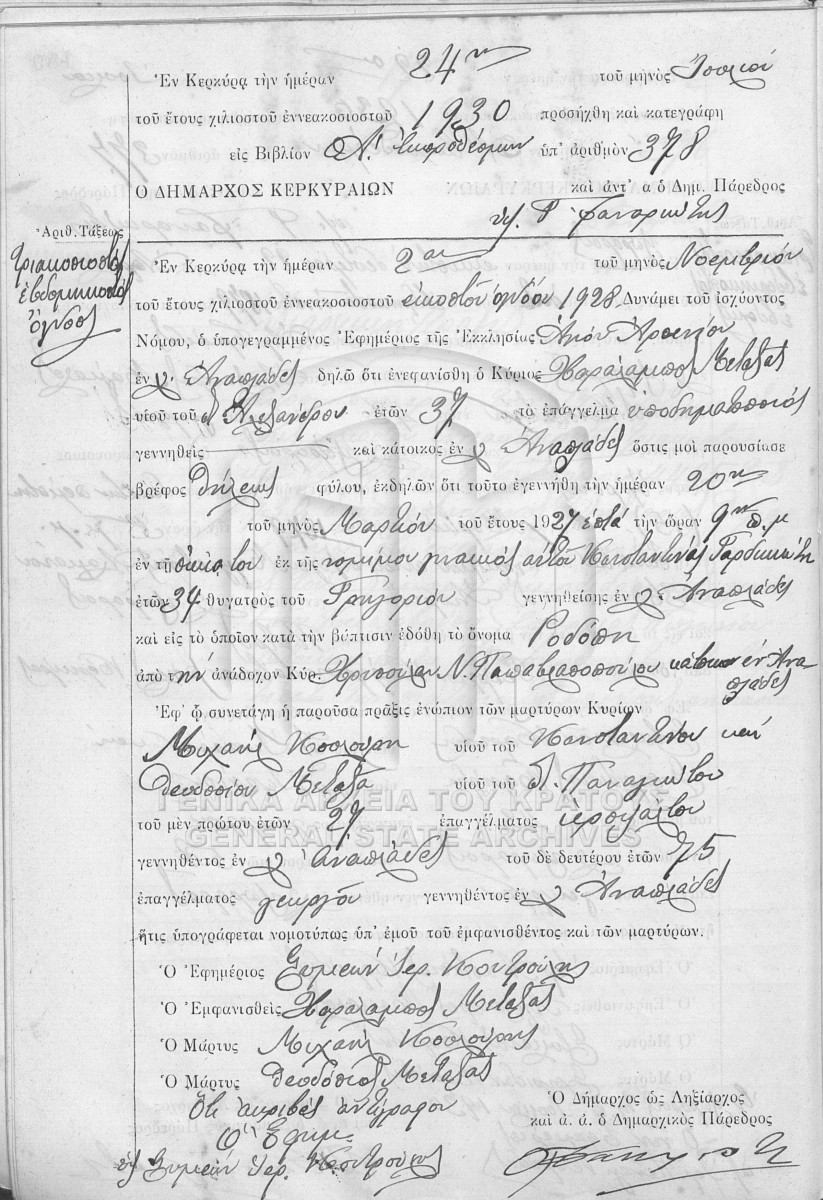 Ἐν Κερκύρᾳ τὴν ἡμέραν 24ην τοῦ μηνὸς
τοῦ ἔτους χιλιοστοῦ ἐννεακοσιοστοῦ 1930 προσήχθη καὶ κατεγράφη
εἰς Βιβλίον Α. ἐκπροθέσμων ὑπ' ἀριθμὸν 378
Ο ΔΗΜΑΡΧΟΣ ΚΕΡΚΥΡΑΙΩΝ καὶ ἀντ' α ὁ Δημ. Πάρεδρος
Φαναριώτης
Ἀριθ. Τάξεως
τριακοσιοστός
ἑβδομηκοστός
ὄγδοος
Ἐν Κερκύρᾳ τὴν ἡμέραν 2αν τοῦ μηνὸς Νοεμβρίου
τοῦ ἔτους χιλιοστοῦ ἐννεακοσιοστοῦ εἰκοστοῦ ὀγδόου 1928. Δυνάμει τοῦ ἰσχύοντος
Νόμου, ὁ ὑπογεγραμμένος Ἐφημέριος τῆς Ἐκκλησίας Ἁγίου Ἀρσενίου
ἐν χ. Ἀναπλάδες δηλῶ ὅτι ἐνεφανίσθη ὁ Κύριος Χαράλαμπος Μεταξᾶς
υἱοῦ τοῦ Ἀλεξάνδρου ἐτῶν 37 τὸ ἐπάγγελμα ὑποδηματοποιός
γεννηθεὶς καὶ κάτοικος ἐν χ Ἀναπλάδες ὅστις μοὶ παρουσίασε
βρέφος θήλεως φύλου, ἐκδηλῶν ὅτι τοῦτο ἐγεννήθη τὴν ἡμέραν 20ην
τοῦ μηνὸς Μαρτίου τοῦ ἔτους 1927 ἑπτά τὴν ὥραν 9ην π.μ
ἐν τῇ οἰκίᾳ του ἐκ τῆς νομίμου γυναικός αὐτοῦ Κωνσταντίνας Γαρδικιώτη
ἐτῶν 34 θυγατρὸς τοῦ Γρηγορίου γεννηθείσης ἐν χ. Ἀναπλάδες
καὶ εἰς τὸ ὁποῖον κατὰ τὴν βάπτισιν ἐδόθη τὸ ὄνομα Ροδόπη
ἀπὸ τὴν ἀνάδοχον Κύρ. Χρυσούλαν Ν. Παπαβλασοπούλου κάτοικον ἐν Ἀνα-
πλάδες
Ἐφ' ᾧ συνετάγη ἡ παροῦσα πρᾶξις ἐνώπιον τῶν μαρτύρων Κυρίων
Μιχαήλ Κοσλούρη υἱοῦ τοῦ Κωνσταντίνου καί
Θεοδοσίου Μεταξᾶ υἱοῦ τοῦ Παναγιώτου
ΓΕΝΙΚΑ ΑΡΧΕΙΑ ΤΟΥ ΚΡΑΤΟΥΣ
τοῦ μὲν πρώτου ἐτῶν 27 ἐπαγγέλματος ἱεροψάλτου
GENERAL STATE ARCHIVES
γεννηθέντος ἐν χ Ἀναπλάδες τοῦ δὲ δευτέρου ἐτῶν 75
ἐπαγγέλματος γεωργοῦ γεννηθέντος ἐν χ Ἀναπλάδες
ἥτις ὑπογράφεται νομοτύπως ὑπ' ἐμοῦ τοῦ ἐμφανισθέντος καὶ τῶν μαρτύρων.
Ὁ Ἐφημέριος Συμεών Ἱερ. Κουτρούλης
Ὁ Ἐμφανισθεὶς Χαράλαμπος Μεταξᾶς
Ὁ Μάρτυς Μιχαήλ Κοσλούρης
Ὁ Μάρτυς Θεοδόσιος Μεταξᾶς
Ὅτι ἀκριβές ἀντίγραφον
Ὁ Ἐφημ.
Συμεών Ἱερ. Κουτρούλης
Ὁ Δήμαρχος ὡς Ληξίαρχος
καὶ ἀ. ἀ. ὁ Δημαρχικὸς Πάρεδρος